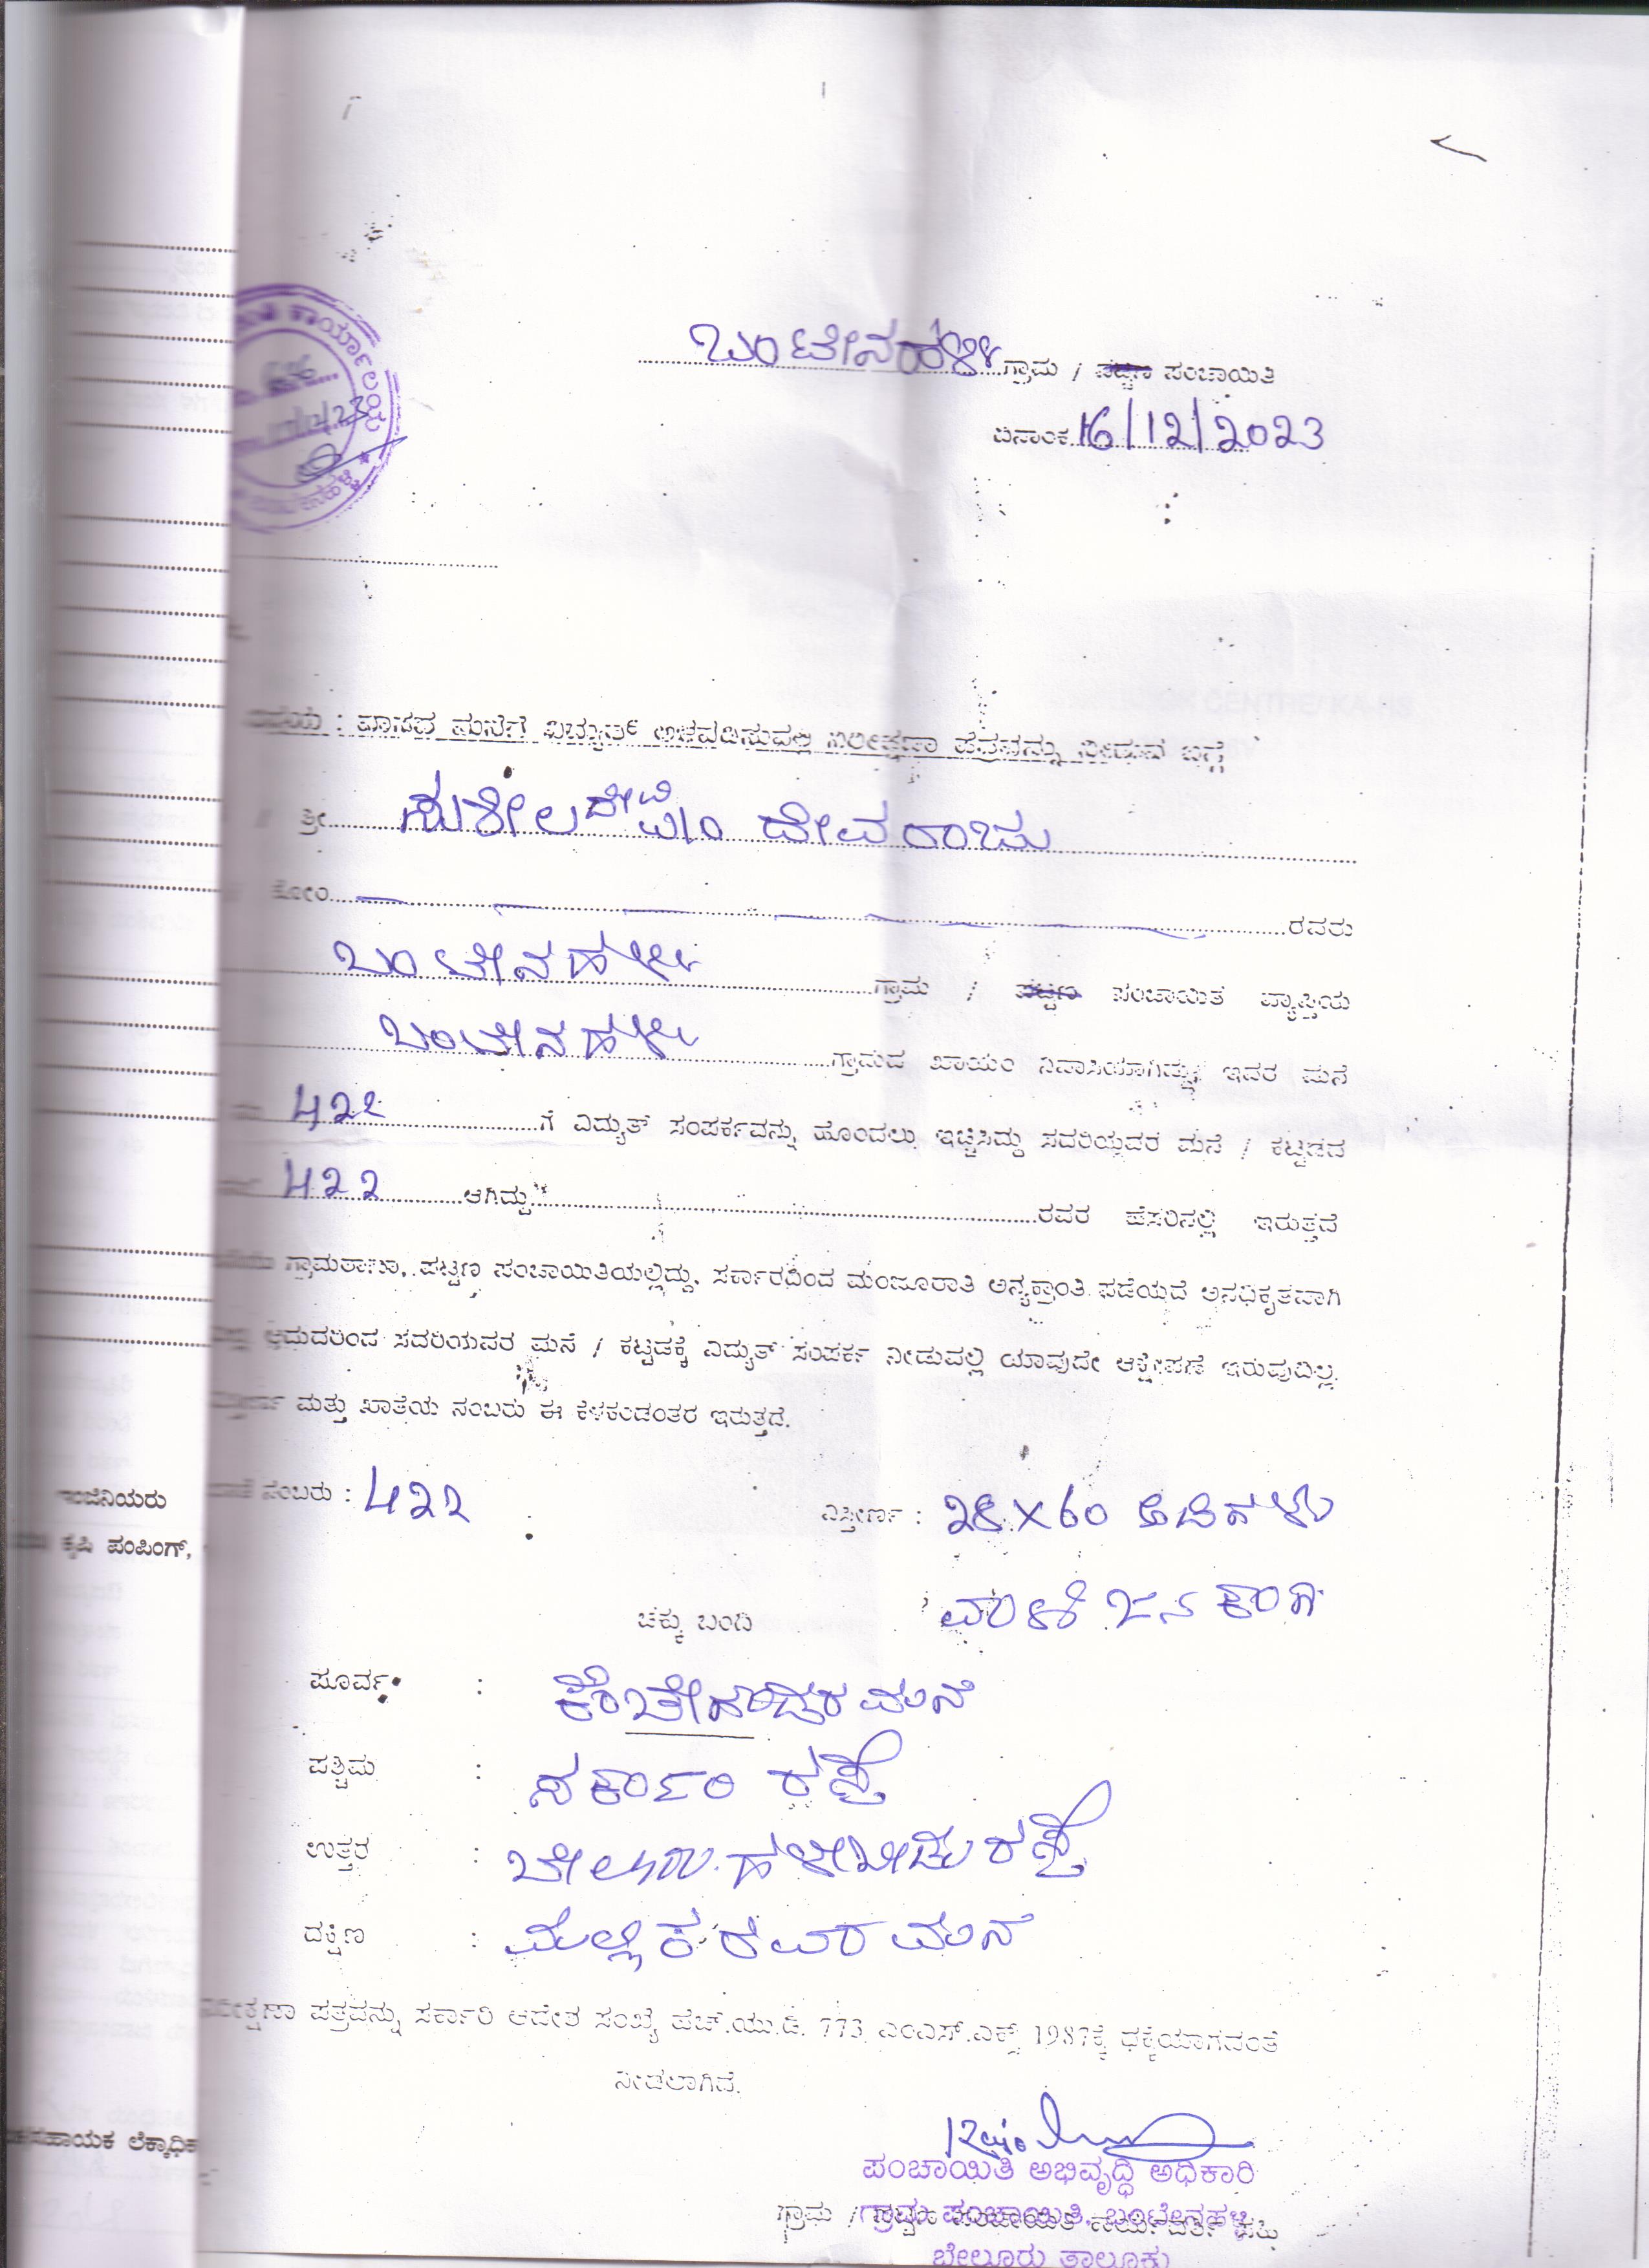 ಕಾರ್ಯಾಲಯ
ಬಂಟೇನಹಳ್ಳಿ ಗ್ರಾಮ / ಪಟ್ಟಣ ಪಂಚಾಯಿತಿ
ದಿನಾಂಕ 16/12/2023
ವಿಷಯ : ವಾಸದ ಮನೆಗೆ ವಿದ್ಯುತ್ ಅಳವಡಿಸುವಲ್ಲಿ ನಿರೀಕ್ಷಣಾ ಪತ್ರವನ್ನು ನೀಡುವ ಬಗ್ಗೆ
ಶ್ರೀ ಸುಶೀಲ ದೇವರಾಜು
ಕೋಂ ರವರು
ಬಂಟೇನಹಳ್ಳಿ ಗ್ರಾಮ / ಪಟ್ಟಣ ಪಂಚಾಯಿತ ವ್ಯಾಪ್ತಿಯ
ಬಂಟೇನಹಳ್ಳಿ ಗ್ರಾಮದ ಖಾಯಂ ನಿವಾಸಿಯಾಗಿದ್ದು, ಇವರ ಮನೆ
422 ಗೆ ವಿದ್ಯುತ್ ಸಂಪರ್ಕವನ್ನು ಹೊಂದಲು ಇಚ್ಚಿಸಿದ್ದು ಸದರಿಯವರ ಮನೆ / ಕಟ್ಟಡದ
422 ಆಗಿದ್ದು ರವರ ಹೆಸರಿನಲ್ಲಿ ಇರುತ್ತದೆ
ಗ್ರಾಮಠಾಣಾ, ಪಟ್ಟಣ ಪಂಚಾಯಿತಿಯಲ್ಲಿದ್ದು, ಸರ್ಕಾರದಿಂದ ಮಂಜೂರಾತಿ ಅನ್ಯಕ್ರಾಂತಿ ಪಡೆಯದೆ ಅನಧಿಕೃತವಾಗಿ
ಆದುದರಿಂದ ಸದರಿಯವರ ಮನೆ / ಕಟ್ಟಡಕ್ಕೆ ವಿದ್ಯುತ್ ಸಂಪರ್ಕ ನೀಡುವಲ್ಲಿ ಯಾವುದೇ ಆಕ್ಷೇಪಣೆ ಇರುವುದಿಲ್ಲ.
ಮತ್ತು ಖಾತೆಯ ನಂಬರು ಈ ಕೆಳಕಂಡಂತರ ಇರುತ್ತದೆ.
ನಂಬರು : 422 ವಿಸ್ತೀರ್ಣ : 28 X 60 ಅಡಿಗಳು
ಇಂಜಿನಿಯರು
ಕೃಷಿ ಪಂಪಿಂಗ್,
ಚಕ್ಕು ಬಂದಿ
ಪೂರ್ವ : ಮನೆ
ಪಶ್ಚಿಮ : ಸರ್ಕಾರಿ ರಸ್ತೆ
ಉತ್ತರ : ಬೇಲೂರು. ಹಳೇಬೀಡು ರಸ್ತೆ
ದಕ್ಷಿಣ : ಮನೆ
ನಿರೀಕ್ಷಣಾ ಪತ್ರವನ್ನು ಸರ್ಕಾರಿ ಆದೇಶ ಸಂಖ್ಯೆ ಹೆಚ್.ಯು.ಡಿ. 773 ಎಂಎಸ್.ಎಕ್ಸ್ 1987ಕ್ಕೆ ಧಕ್ಕೆಯಾಗದಂತೆ
ನೀಡಲಾಗಿದೆ.
ಸಹಾಯಕ ಲೆಕ್ಕಾಧಿಕ
ಪಂಚಾಯಿತಿ ಅಭಿವೃದ್ಧಿ ಅಧಿಕಾರಿ
ಗ್ರಾಮ ಪಂಚಾಯಿತಿ, ಬಂಟೇನಹಳ್ಳಿ
ಬೇಲೂರು ತಾಲ್ಲೂಕು